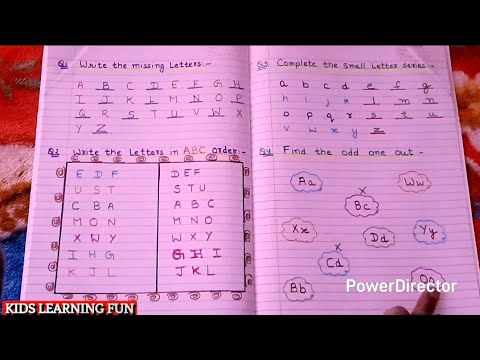 Q1 Write the missing Letters:-
A B C D E F G H
I J K L M N O P
Q R S T U V W X
Y Z
Q2 Write the Letters in ABC order:-
E D F DEF
U S T S T U
C B A A B C
M O N M N O
X W Y W X Y
I H G G H I
K J L J K L
Q3 Complete the small Letter series:-
a b c d e f g
h i j k l m n
o p q r s t u
v w x y z
Q4 Find the odd one out:-
Aa
x
Bc
Ww
Xx
Dd
Yy
x
Cd
Bb
PowerDirector
KIDS LEARNING FUN